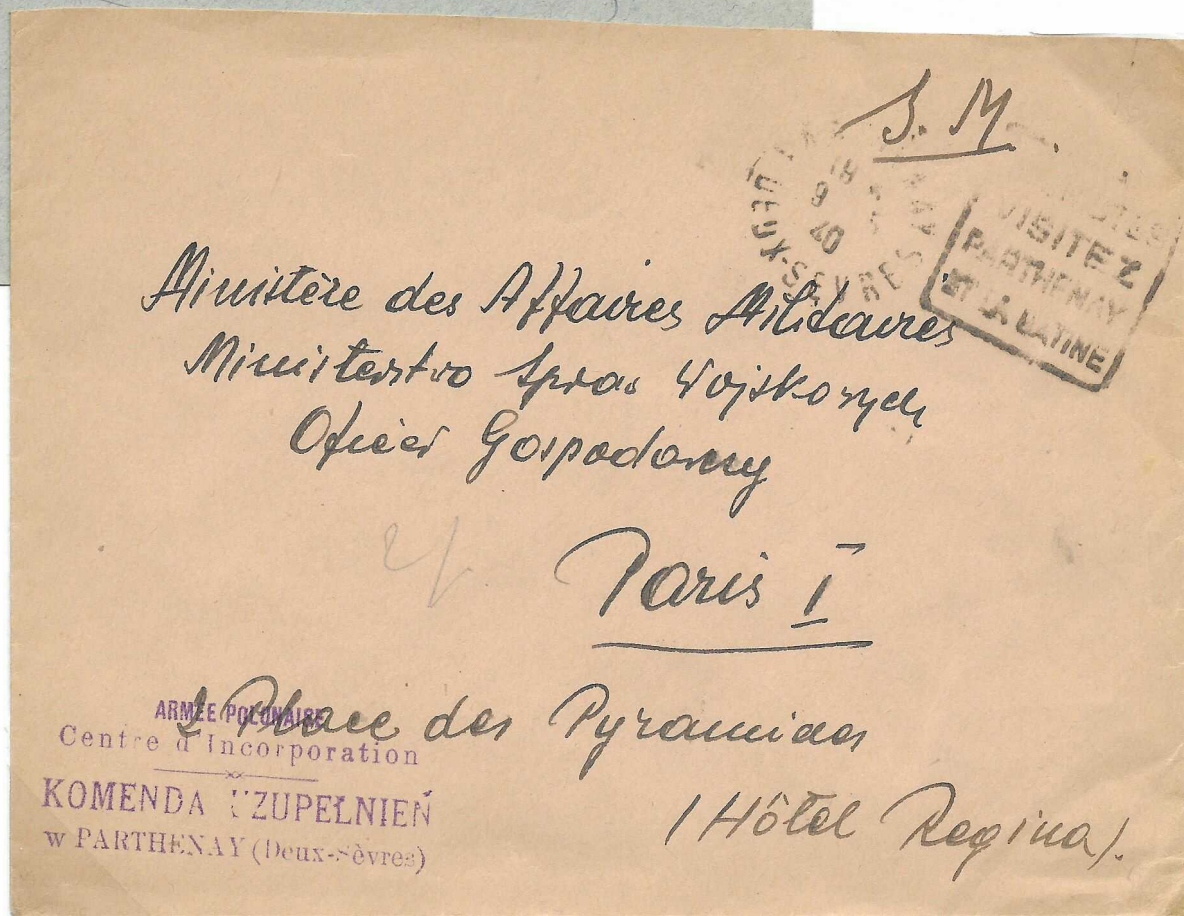 S. M.
18
9
40
DEUX-SEVRES
VISITEZ
PARTHENAY
ET LA GATINE
Ministère des Affaires Militaires
Ministerstwo Spraw Wojskowych
Oficer Gospodarczy
Paris I
2 Place des Pyramides
(Hôtel Regina).
ARMÉE POLONAISE
Centre d'Incorporation
KOMENDA UZUPEŁNIEŃ
w PARTHENAY (Deux-Sèvres)